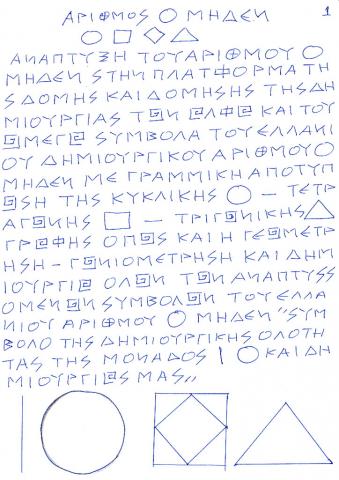 ΑΡΙΘΜΟΣ Ο ΜΗΔΕΝ 1
○ □ ◇ △
ΑΝΑΠΤΥΞΗ ΤΟΥ ΑΡΙΘΜΟΥ Ο
ΜΗΔΕΝ ΣΤΗΝ ΠΛΑΤΦΟΡΜΑ ΤΗ
Σ ΔΟΜΗΣ ΚΑΙ ΔΟΜΗΣΗΣ ΤΗΣ ΔΗ
ΜΙΟΥΡΓΙΑΣ ΤΩΝ ΑΛΦΑ ΚΑΙ ΤΟΥ
ΩΜΕΓΑ ΣΥΜΒΟΛΑ ΤΟΥ ΕΛΛΑΝΙ
ΟΥ ΔΗΜΙΟΥΡΓΙΚΟΥ ΑΡΙΘΜΟΥ Ο
ΜΗΔΕΝ ΜΕ ΓΡΑΜΜΙΚΗ ΑΠΟΤΥΠ
ΩΣΗ ΤΗΣ ΚΥΚΛΙΚΗΣ ○ — ΤΕΤΡ
ΑΓΩΝΗΣ □ — ΤΡΙΓΩΝΙΚΗΣ △
ΓΡΑΦΗΣ ΟΠΩΣ ΚΑΙ Η ΓΕΩΜΕΤΡ
ΗΣΗ – ΓΩΝΙΟΜΕΤΡΗΣΗ ΚΑΙ ΔΗΜ
ΙΟΥΡΓΙΑ ΟΛΩΝ ΤΩΝ ΑΝΑΠΤΥΣΣ
ΟΜΕΝΩΝ ΣΥΜΒΟΛΩΝ ΤΟΥ ΕΛΛΑ
ΝΙΟΥ ΑΡΙΘΜΟΥ Ο ΜΗΔΕΝ "ΣΥΜ
ΒΟΛΟ ΤΗΣ ΔΗΜΙΟΥΡΓΙΚΗΣ ΟΛΟΤΗ
ΤΑΣ ΤΗΣ ΜΟΝΑΔΟΣ | Ο ΚΑΙ ΔΗ
ΜΙΟΥΡΓΙΑΣ ΜΑΣ,,